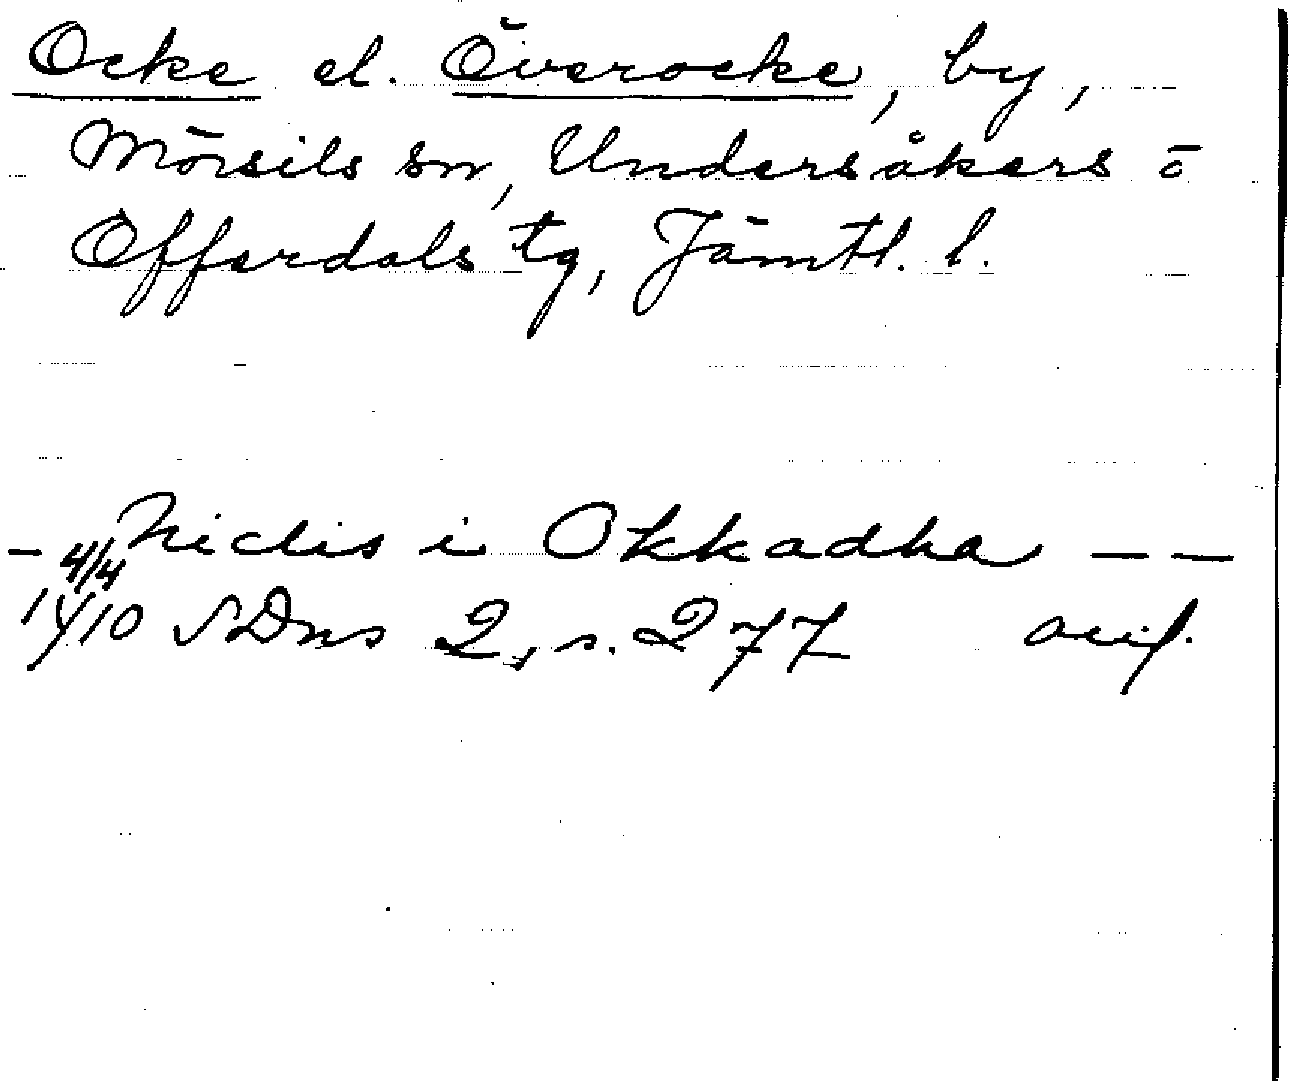 Ocke el. Överocke, by,
Mörsils sn, Undersåkers o
Offerdals tg, Jämtl. l.
– Niclis i Okkadha – –
4/4 1410 SDns 2, s. 277 avs.